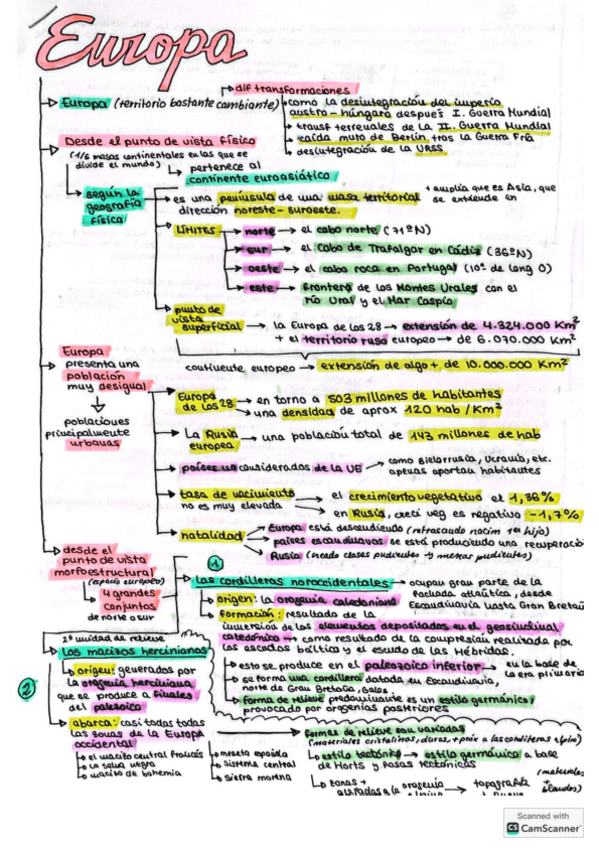 Europa
dif transformaciones
Europa (territorio bastante cambiante)
como la desintegración del imperio
austro-húngaro después I. Guerra Mundial
transf terreuales de la II. Guerra Mundial
caída muro de Berlín, tras la Guerra Fría
desintegración de la URSS
Desde el punto de vista físico
(1/6 masas continentales en las que se
divide el mundo)
pertenece al
continente euroasiático
según la
geografía
física
es una península de una masa territorial
+ amplia que es Asia, que
se extiende en
dirección noreste-suroeste.
LÍMITES
norte → el cabo norte (71ºN)
sur → el Cabo de Trafalgar en Cádiz (36ºN)
oeste → el cabo roca en Portugal (10º de long O)
este → frontera de los Montes Urales con el
río Ural y el Mar Caspio
punto de
vista
superficial → la Europa de los 28 → extensión de 4.324.000 Km²
+ el territorio ruso europeo → de 6.070.000 KM²
continente europeo → extensión de algo + de 10.000.000 Km²
Europa
presenta una
población
muy desigual
poblaciones
principalmente
urbanas
Europa
de los 28
en torno a 503 millones de habitantes
una densidad de aprox 120 hab/Km²
La Rusia
europea → una población total de 143 millones de hab
países no considerados de la UE
como Bielorrusia, Ucrania, etc.
apenas aportan habitantes
tasa de nacimiento
no es muy elevada
el crecimiento vegetativo el 1,36%
en Rusia, creci veg es negativo -1,7%
natalidad
Europa está descendiendo (retrasando nacim 1er hijo)
países escandinavos se está produciendo una recuperació
Rusia (creado clases pudientes y menos pudientes)
desde el
punto de vista
morfoestructural
(espacio europeo)
4 grandes
conjuntos
de norte a sur
1
Las cordilleras noroccidentales
ocupan gran parte de la
fachada atlántica, desde
Escandinavia hasta Gran Bretañ
origen: la orogenia caledoniana
formación: resultado de la
inmersión de los elementos depositados en el geosinclinal
caledónico → como resultado de la compresión realizada por
los escudos báltico y el escudo de las Hébridas.
esto se produce en el paleozoico inferior → en la base de
la era primaria
se forma una cordillera datada en Escandinavia,
norte de Gran Bretaña, Gales.
forma de relieve predominante es un estilo germánico;
provocado por orogenias posteriores
2
2ª unidad de relieve
Los macizos hercinianos
origen: generados por
la orogenia herciniana
que se produce a finales
del paleozoico
abarca: casi todas todas
las zonas de la Europa
occidental
el macizo central francés
la selva negra
macizo de bohemia
meseta española
sistema central
sierra morena
formas de relieve son variadas
(materiales cristalinos, duros, + próx a las cordilleras alpina)
estilo tectónico → estilo germánico a base
de Horts y fosas tectónicas
(materiales
zonas +
topografía
blandos)
Scanned with
CS CamScanner